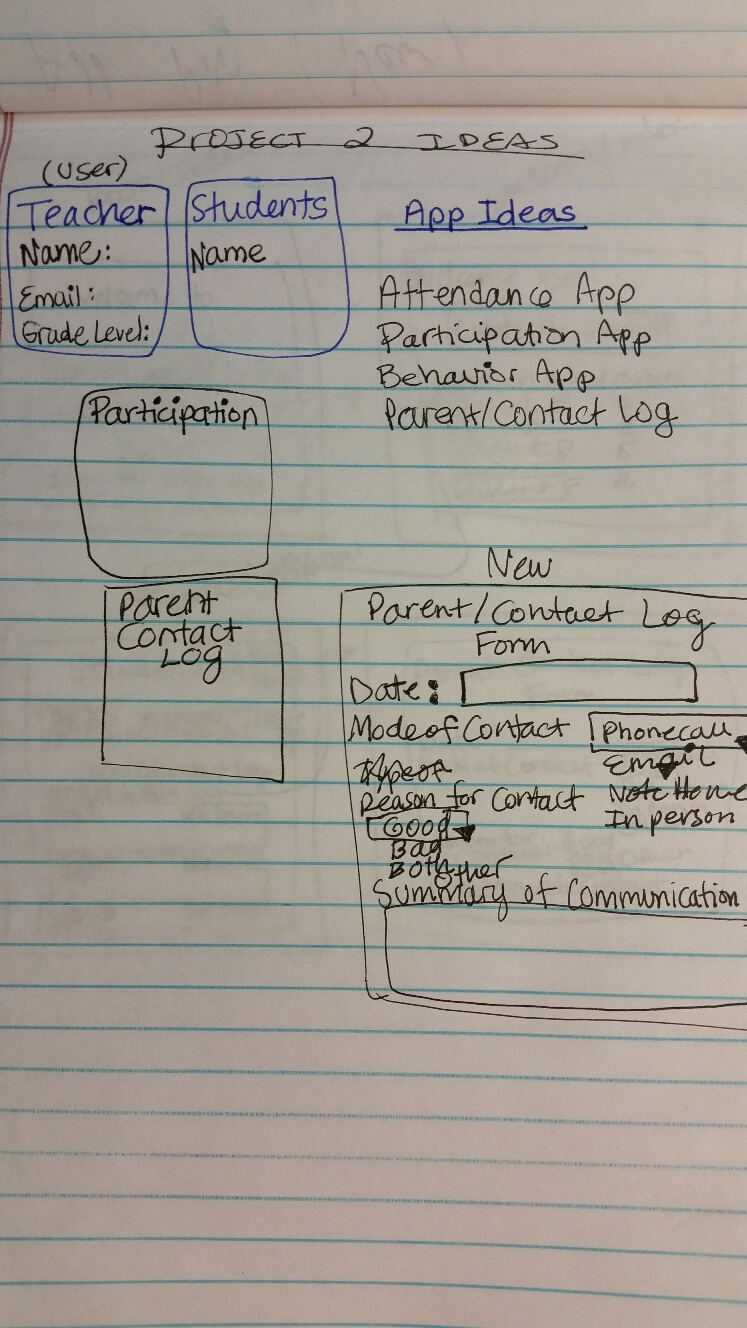 PROJECT 2 IDEAS
(User)
Teacher
Name:
Email:
Grade Level:
Students
Name
App Ideas
Attendance App
Participation App
Behavior App
Parent/Contact Log
Participation
Parent
Contact
Log
New
Parent/Contact Log
Form
Date:
Mode of Contact Phonecall
Email
Type of
Reason for Contact Note Home
Good In person
Bad
Both
Other
Summary of Communication